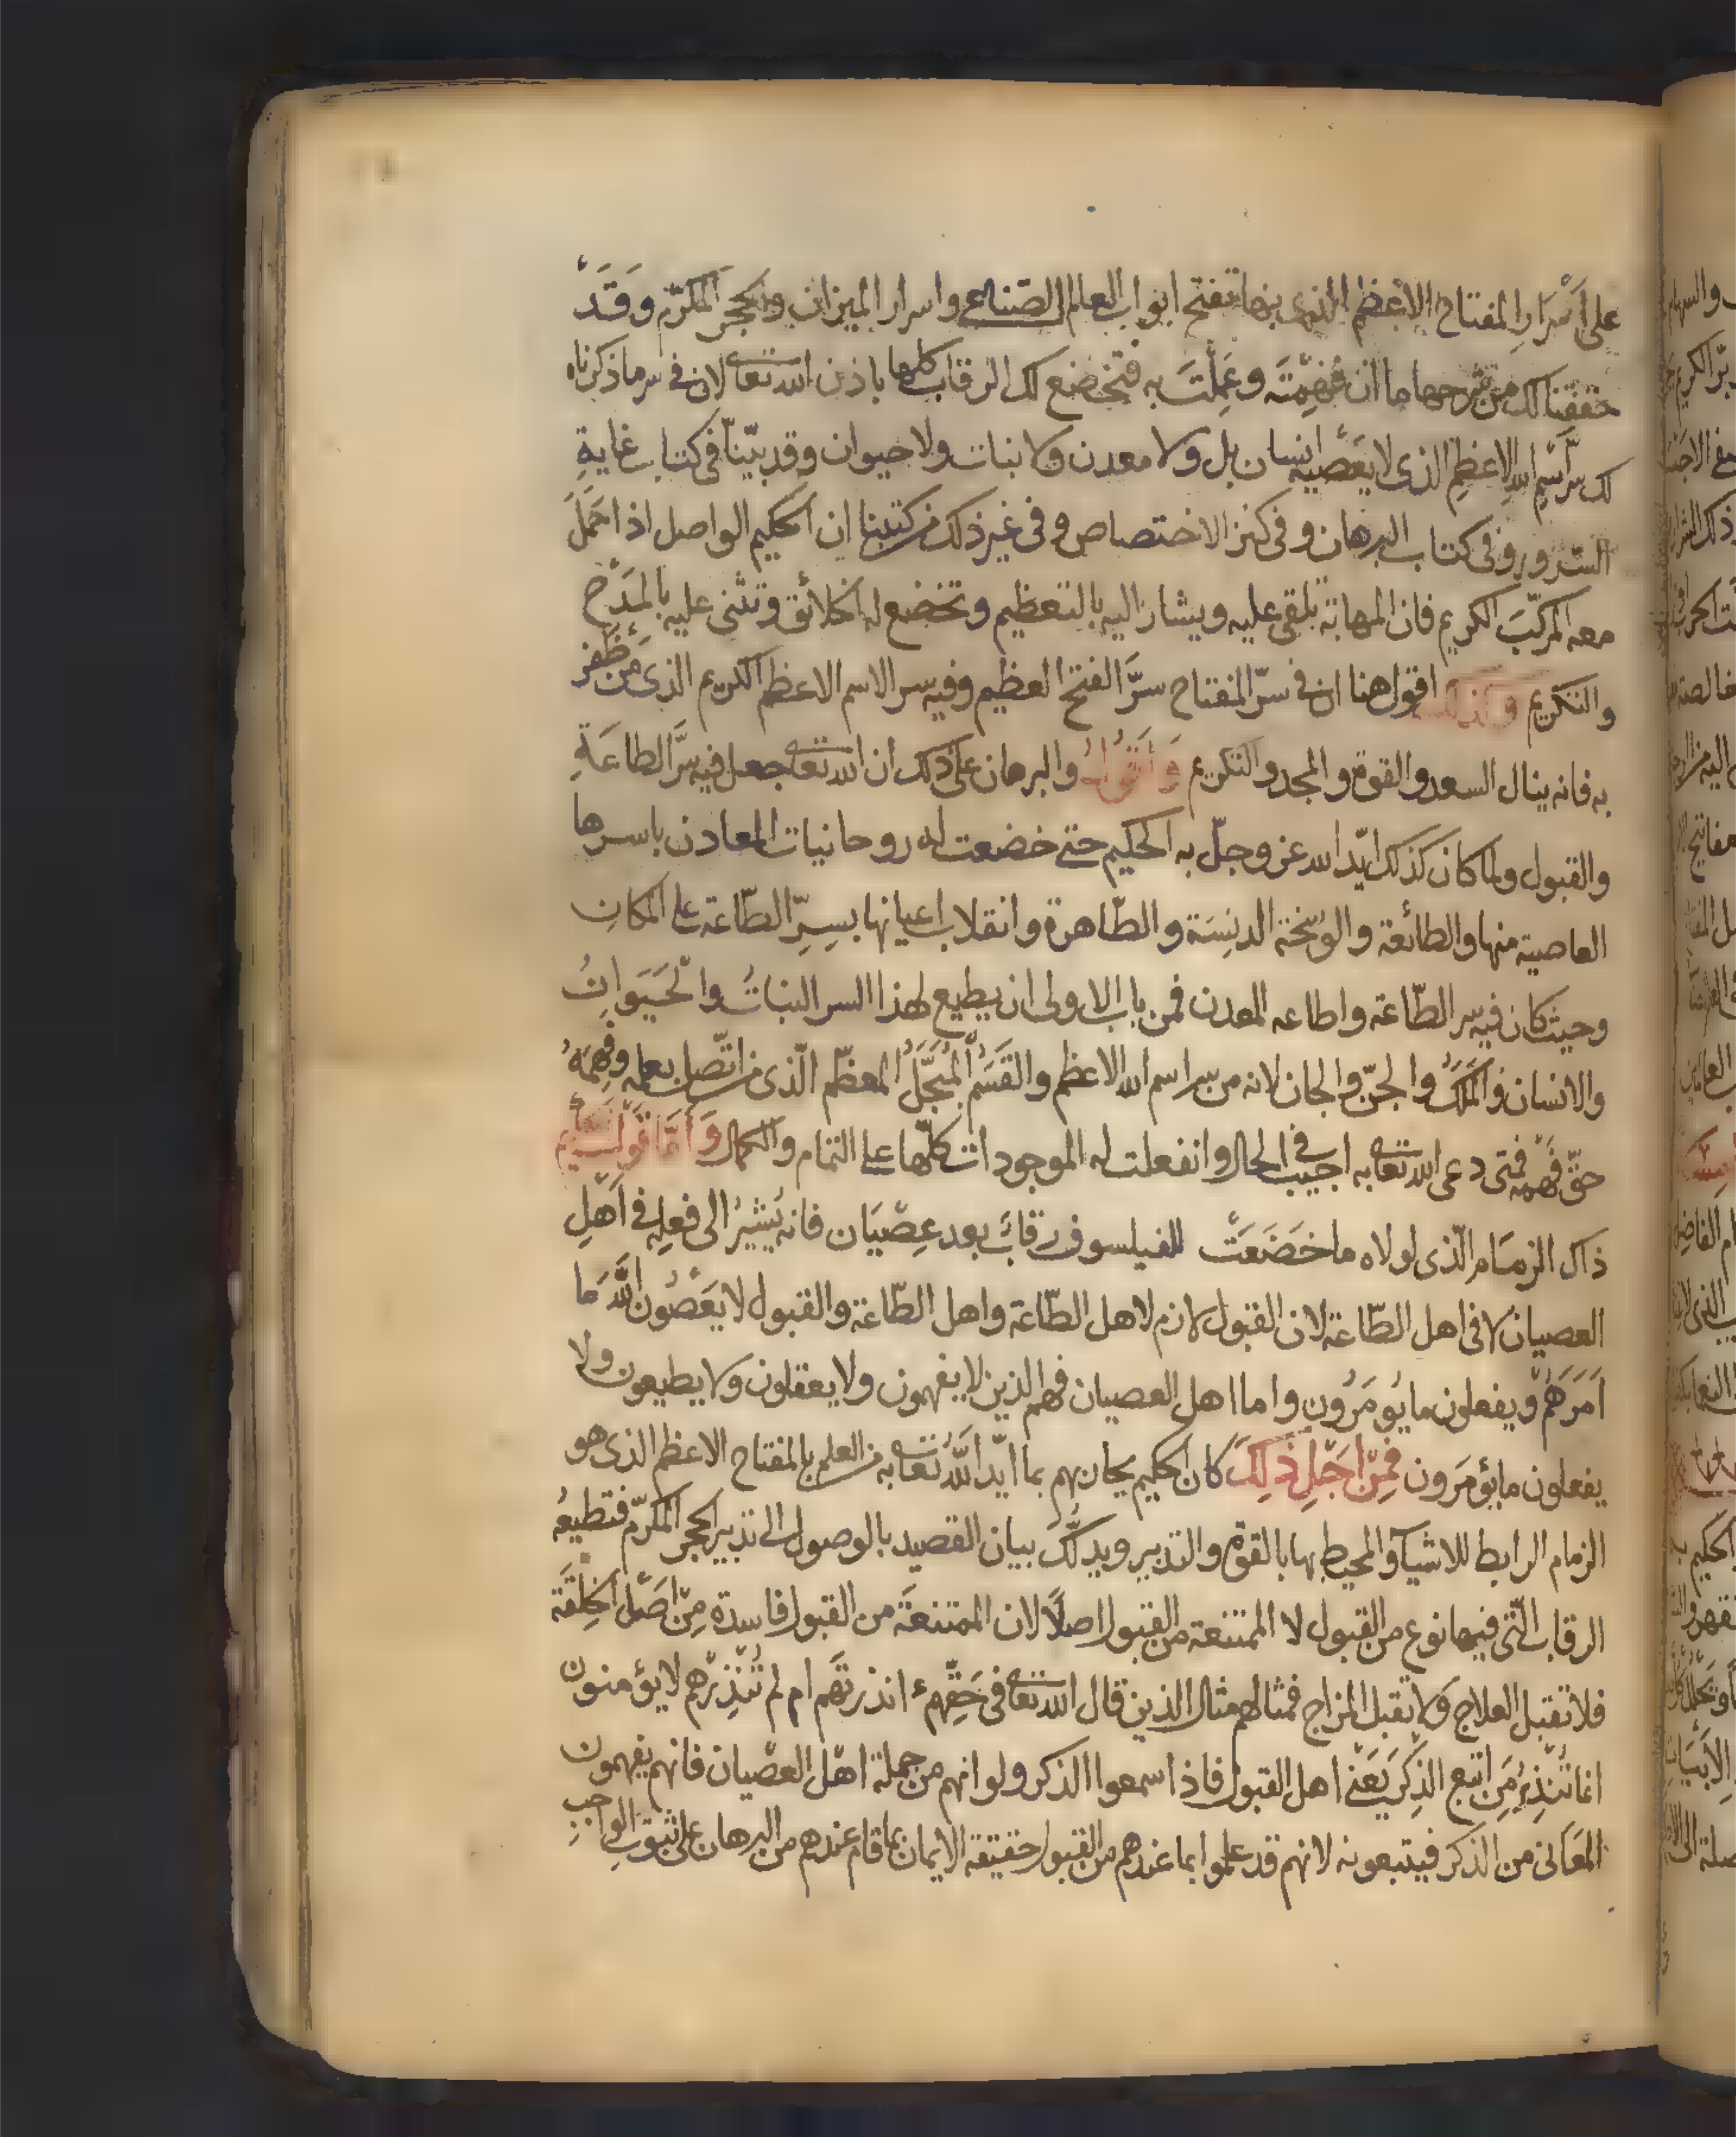 على اَسْرَارِ المفتاح الاعظم الذى بها تفتح ابواب العلم الصّناعى واسرار الميزان والحجر المكرّم وقَدْ
حققنا لك من شرحها ما ان فهِمْتَه وعَمِلْتَ به فتخضع لك الرقاب كلها باذن الله تعالى لان فى سر ما ذكرناه
لك سرّ اسْمِ الله الاعظمِ الذى لا يَعْصيه انسان بل ولا معدن ولا نبات ولا حيوان وقد بيّنّا فى كتاب غايةِ
السّرور وفى كتاب البرهان وفى كنز الاختصاص وفى غير ذلك من كتبنا ان الحكيم الواصل اذا حَمَلَ
معه المركّبَ الكريم فان المهابة تلقى عليه ويشار اليه بالتعظيم وتخضع له الخلائق وتثنى عليه بالمَدْح
والتكريم ولذلك اقول هنا ان فى سرّ المفتاح سرَّ الفتح العظيم وفيه سر الاسم الاعظم الكريم الذى مَن ظَفِرَ
به فانه ينال السعد والقوة والمجد والتكريم وَاَقُولُ والبرهان على ذلك ان الله تعالى جعل فيه سرَّ الطاعَةِ
والقبول ولما كان كذلك ايّد الله عز وجلّ به الحكيم حتى خضعت له روحانيات المعادن باسرها
العاصية منها والطائعة والوَسِخة الدنِسَة والطّاهرة وانقلاب اعيانها بسِرِّ الطّاعة على المكانِ
وحيث كان فيه سر الطّاعة واطاعه المعدن فمن باب الاولى ان يطيع لهذا السر النباتُ والْحَيَوانُ
والانسان والمَلَكُ والجنّ والجان لانه من سر اسم الله الاعظم والقَسَمُ المُبَجَّلُ المعظّم الّذى من اتّصل بعلمه وفَهِمَهُ
حقّ فَهْمِه فمتى دعى الله تعالى به اجيب فى الحال وانفعلت له الموجودات كلّها على التمام والكمال وَاَمَّا قَوْلُ الحكيم
ذاك الزمَام الّذى لولاه ما خَضَعَتْ للفيلسوف رقابٌ بعد عِصْيَان فانه يُشيرُ الى فعلِه فى اَهْلِ
العصيان لا فى اهل الطّاعة لان القبول لازم لاهل الطّاعة واهل الطّاعة والقبول لا يَعْصُون اللهَ مَا
اَمَرَهُمْ ويفعلون ما يُومَرُون واما اهل العصيان فهم الذين لا يفهمون ولا يعقلون ولا يطيعون ولا
يفعلون ما يؤمَرون فَمِنْ اَجْلِ ذٰلِكَ كان الحكيم يحاربهم بما ايّد اللهُ تعالى به من العلم بالمفتاح الاعظم الذى هو
الزمام الرابط للاشيآء والمحيط بها بالقوّة والتدبير ويدلّك بيان القصيد بالوصول الى تدبير الحجر المكرّم فتطيعُه
الرقاب الّتى فيها نوع من القبول لا الممتنعة من القبول اصلًا لان الممتنعَة من القبول فاسدة مِنْ اصْلِ الخِلْقَة
فلا تقبل العلاج ولا تقبل المزاج فمثالهم مثال الذين قال الله تعالى فى حَقِّهِم ءانذرتَهم ام لم تُنْذِرْهم لا يؤمنون
انما تُنْذِرُ مَنِ اتبع الذِكْرَ يَعْنى اهل القبول فاذا سمعوا الذكر ولو انهم من جملة اهْل العصْيان فانهم يفهمون
المعَانى من الذكر فيتبعونه لانهم قد علموا بما عندهم من القبول حقيقة الايمان بما قام عندهم من البرهان على ثبوتِ الواجبِ